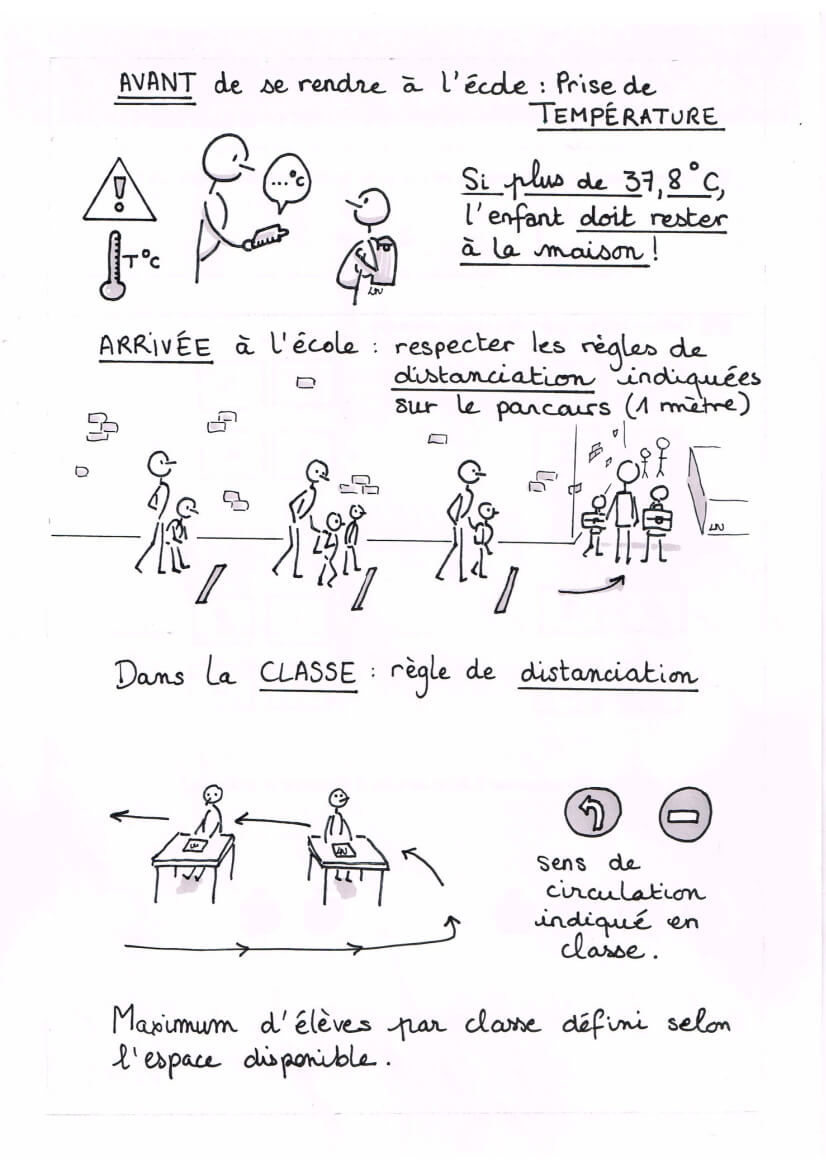 AVANT de se rendre à l'école : Prise de
TEMPÉRATURE
...°C
Si plus de 37,8°C,
l'enfant doit rester
à la maison !
T°C
ARRIVÉE à l'école : respecter les règles de
distanciation indiquées
sur le parcours (1 mètre)
Dans la CLASSE : règle de distanciation
sens de
circulation
indiqué en
classe.
Maximum d'élèves par classe défini selon
l'espace disponible.